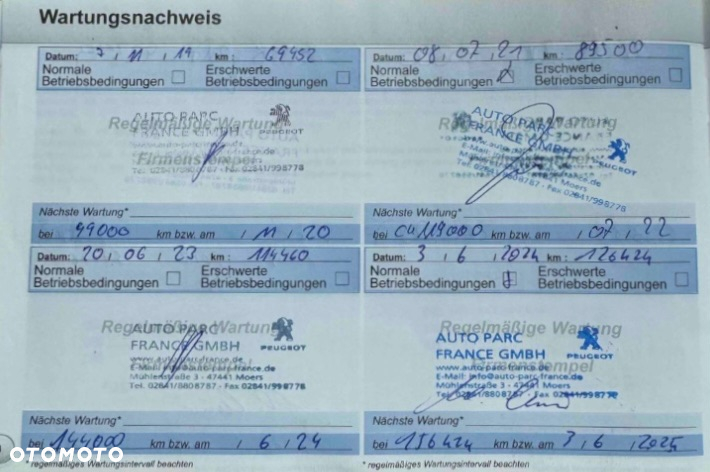 Wartungsnachweis
Datum: 7 , 11 , 19 km : 69452
Normale Betriebsbedingungen
Erschwerte Betriebsbedingungen
Regelmäßige Wartung
Firmenstempel
AUTO PARC
FRANCE GMBH
PEUGEOT
Nächste Wartung*
bei 99000 km bzw. am , 11 , 20
Datum: 08 , 07 , 21 km : 89500
Normale Betriebsbedingungen
Erschwerte Betriebsbedingungen
AUTO PARC
FRANCE GMBH
PEUGEOT
02841/998778
Nächste Wartung*
bei ca 119000 km bzw. am , 07 , 22
Datum: 20 , 06 , 23 km : 114460
Normale Betriebsbedingungen
Erschwerte Betriebsbedingungen
Regelmäßige Wartung
AUTO PARC
FRANCE GMBH
PEUGEOT
www.auto-parc-france.de
E-Mail: info@auto-parc-france.de
Mühlenstraße 3 - 47441 Moers
Tel. 02841/8808787 - Fax 02841/998778
Nächste Wartung*
bei 144000 km bzw. am , 6 , 24
* regelmäßiges Wartungsintervall beachten
Datum: 3 , 6 , 2024 km : 126424
Normale Betriebsbedingungen
Erschwerte Betriebsbedingungen
Regelmäßige Wartung
Firmenstempel
AUTO PARC
FRANCE GMBH
PEUGEOT
www.auto-parc-france.de
E-Mail: info@auto-parc-france.de
Mühlenstraße 3 - 47441 Moers
Tel. 02841/8808787 - Fax 02841/998778
Nächste Wartung*
bei 156424 km bzw. am 3 , 6 , 2025
* regelmäßiges Wartungsintervall beachten
OTOMOTO